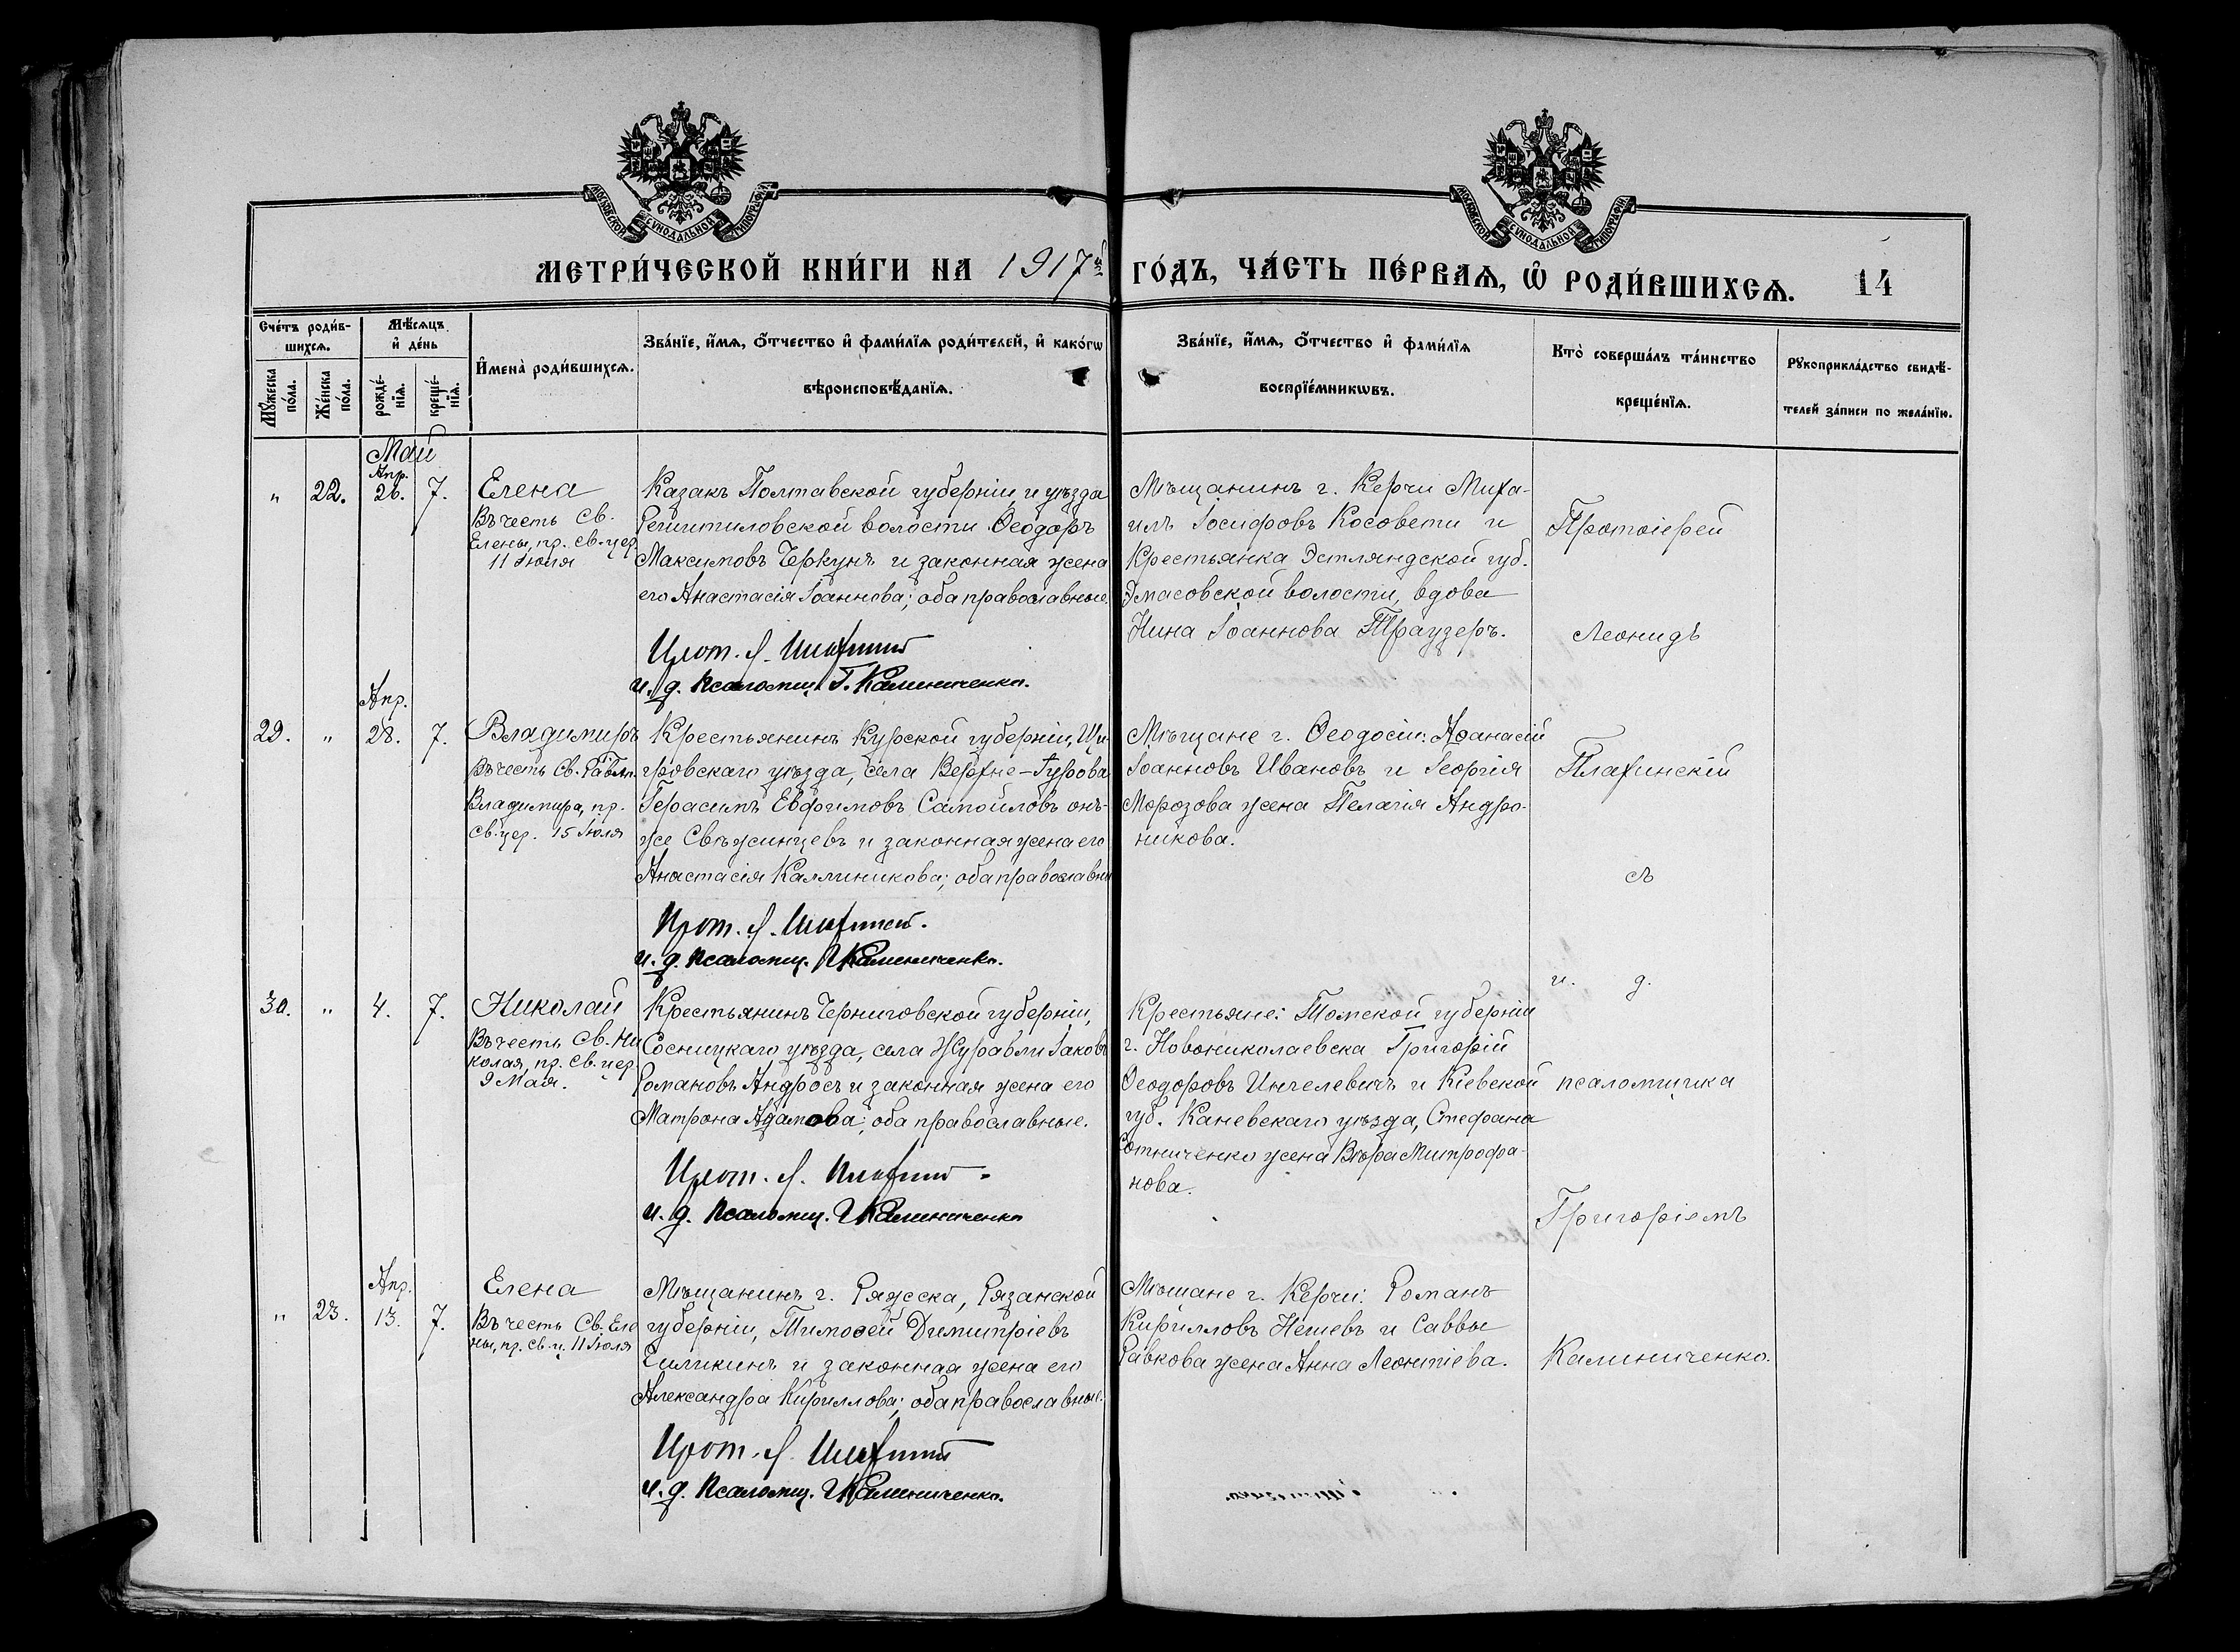 МОСКОВСКОЙ СѴНОДАЛЬНОЙ ТИПОГРАФІИ
МОСКОВСКОЙ СѴНОДАЛЬНОЙ ТИПОГРАФІИ
МЕТРИ́ЧЕСКОЙ КНИ́ГИ НА 1917й ГО́ДЪ, ЧА́СТЬ ПЕ́РВАѦ, Ѡ РОДИ́ВШИХСѦ. 14
Сче́тъ роди́в-
шихсѧ.
Мѣ́сѧцъ
и҆ де́нь
Мꙋ́жеска по́ла.
Же́нска по́ла.
рожде́нїѧ.
креще́нїѧ.
И҆мена̀ роди́вшихсѧ.
Зва́нїе, и҆́мѧ, ѻ҆́тчество и҆ фами́лїѧ роди́телей, и҆ како́гѡ
вѣроисповѣ́данїѧ.
Зва́нїе, и҆́мѧ, ѻ҆́тчество и҆ фами́лїѧ
воспрїе́мникѡвъ.
Кто̀ соверша́лъ та́инство
креще́нїѧ.
Рꙋкоприкла́дство свидѣ́-
телей за́писи по жела́нїю.
Май
" 22. Апр. 26. 7.
Елена
Въ честь Св.
Елены, пр. св. цер.
11 Іюля
Казакъ Полтавской губерніи и уѣзда
Решитиловской волости Ѳеодоръ
Максимовъ Черкунъ и законная жена
его Анастасія Іоаннова; оба православные.
Прот. Л.
и. д. псаломщ. Г. Калиниченко.
Мѣщанинъ г. Керчи Миха-
илъ Іосифовъ Косовети и
Крестьянка Эстляндской губ.
Эмасовской волости, вдова
Нина Іоаннова Траузеръ.
Протоіерей
Леонидъ
Апр.
29. " 28. 7.
Владимиръ
Въ честь Св. Равноап.
Владимира, пр.
св. цер. 15 Іюля
Крестьянинъ Курской губерніи, Щи-
гровскаго уѣзда, села Верхне-Гурова
Герасимъ Евфимовъ Самойловъ онъ-
же Свѣжинцевъ и законная жена его
Анастасія Каллиникова; оба православны
Прот. Л.
и. д. псаломщ. Г Калиниченко.
Мѣщане г. Ѳеодосіи: Аѳанасій
Іоанновъ Ивановъ и Георгія
Морозова жена Пелагія Андро-
никова.
Плахинскій
съ
и. д.
30. " 4. 7.
Николай
Въ честь Св. Ни
колая, пр. св. цер.
9 Мая.
Крестьянинъ Черниговской губерніи,
Сосницкаго уѣзда, села Журавли Іаковъ
Романовъ Андросъ и законная жена его
Матрона Адамова; оба православные.
Прот. Л.
и. д. псаломщ. Г Калиниченко
Крестьяне: Томской губерніи
г. Новониколаевска Григорій
Ѳеодоровъ Ингелевичъ и Кіевской
губ. Каневскаго уѣзда, Стефана
Сотниченко жена Вѣра Митрофа-
нова.
псаломщика
Григоріемъ
Апр.
" 23. 13. 7.
Елена
Въ честь Св. Еле
ны, пр. св. ц. 11 Іюля
Мѣщанинъ г. Ряжска, Рязанской
губерніи, Тимоѳей Димитріевъ
и законная жена его
Александра Кириллова; оба православные.
Прот. Л.
и. д. псаломщ. Г Калиниченко.
Мѣщане г. Керчи: Романъ
Кирилловъ Нешевъ и Саввы
Равкова жена Анна Леонтіева.
Калиниченко.